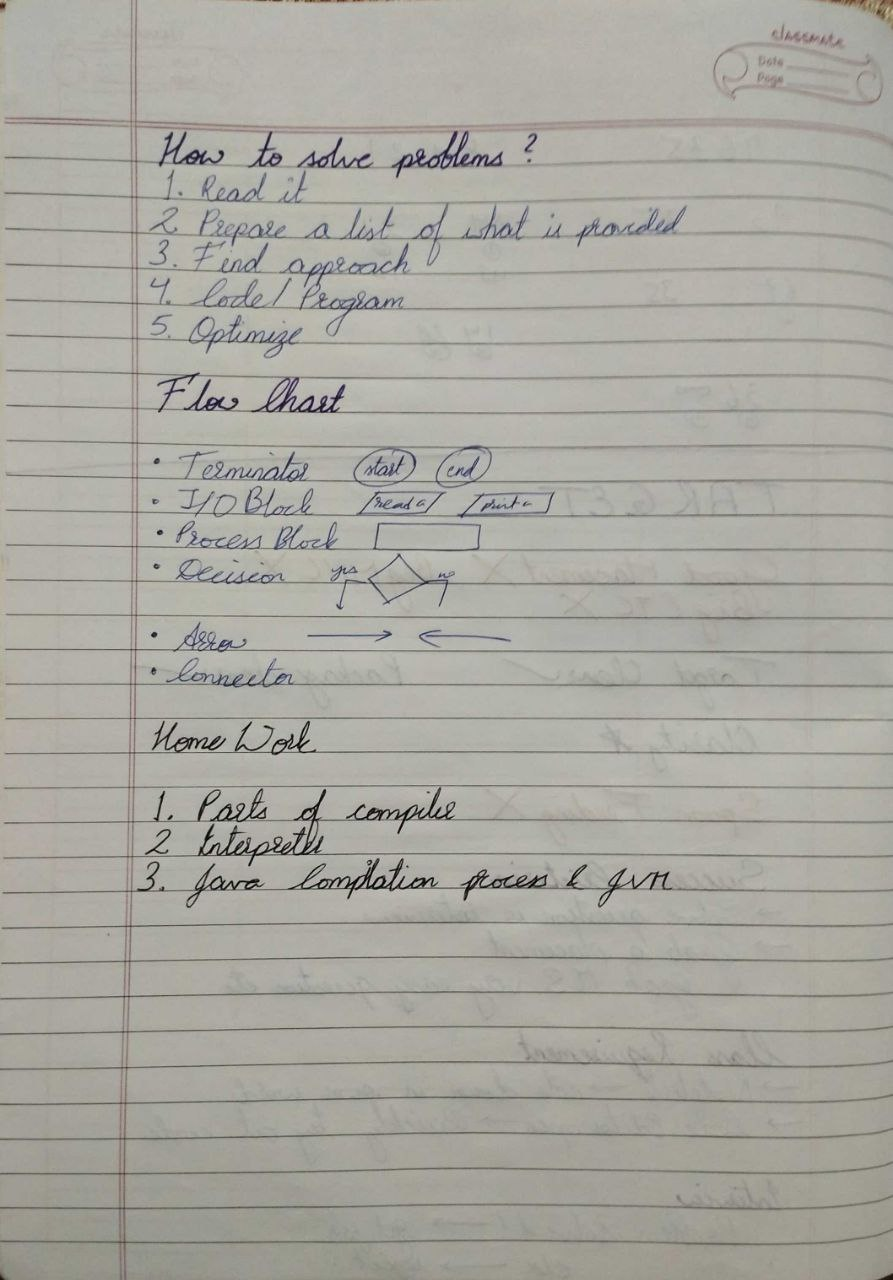 classmate
Date
Page
How to solve problems ?
1. Read it
2 Prepare a list of what is provided
3. Find approach
4. Code / Program
5. Optimize
Flow Chart
• Terminator start end
• I/O Block read a print a
• Process Block
• Decision yes no
• Arrow
• Connector
Home Work
1. Parts of compiler
2 Interpreter
3. Java Compilation process & JVM